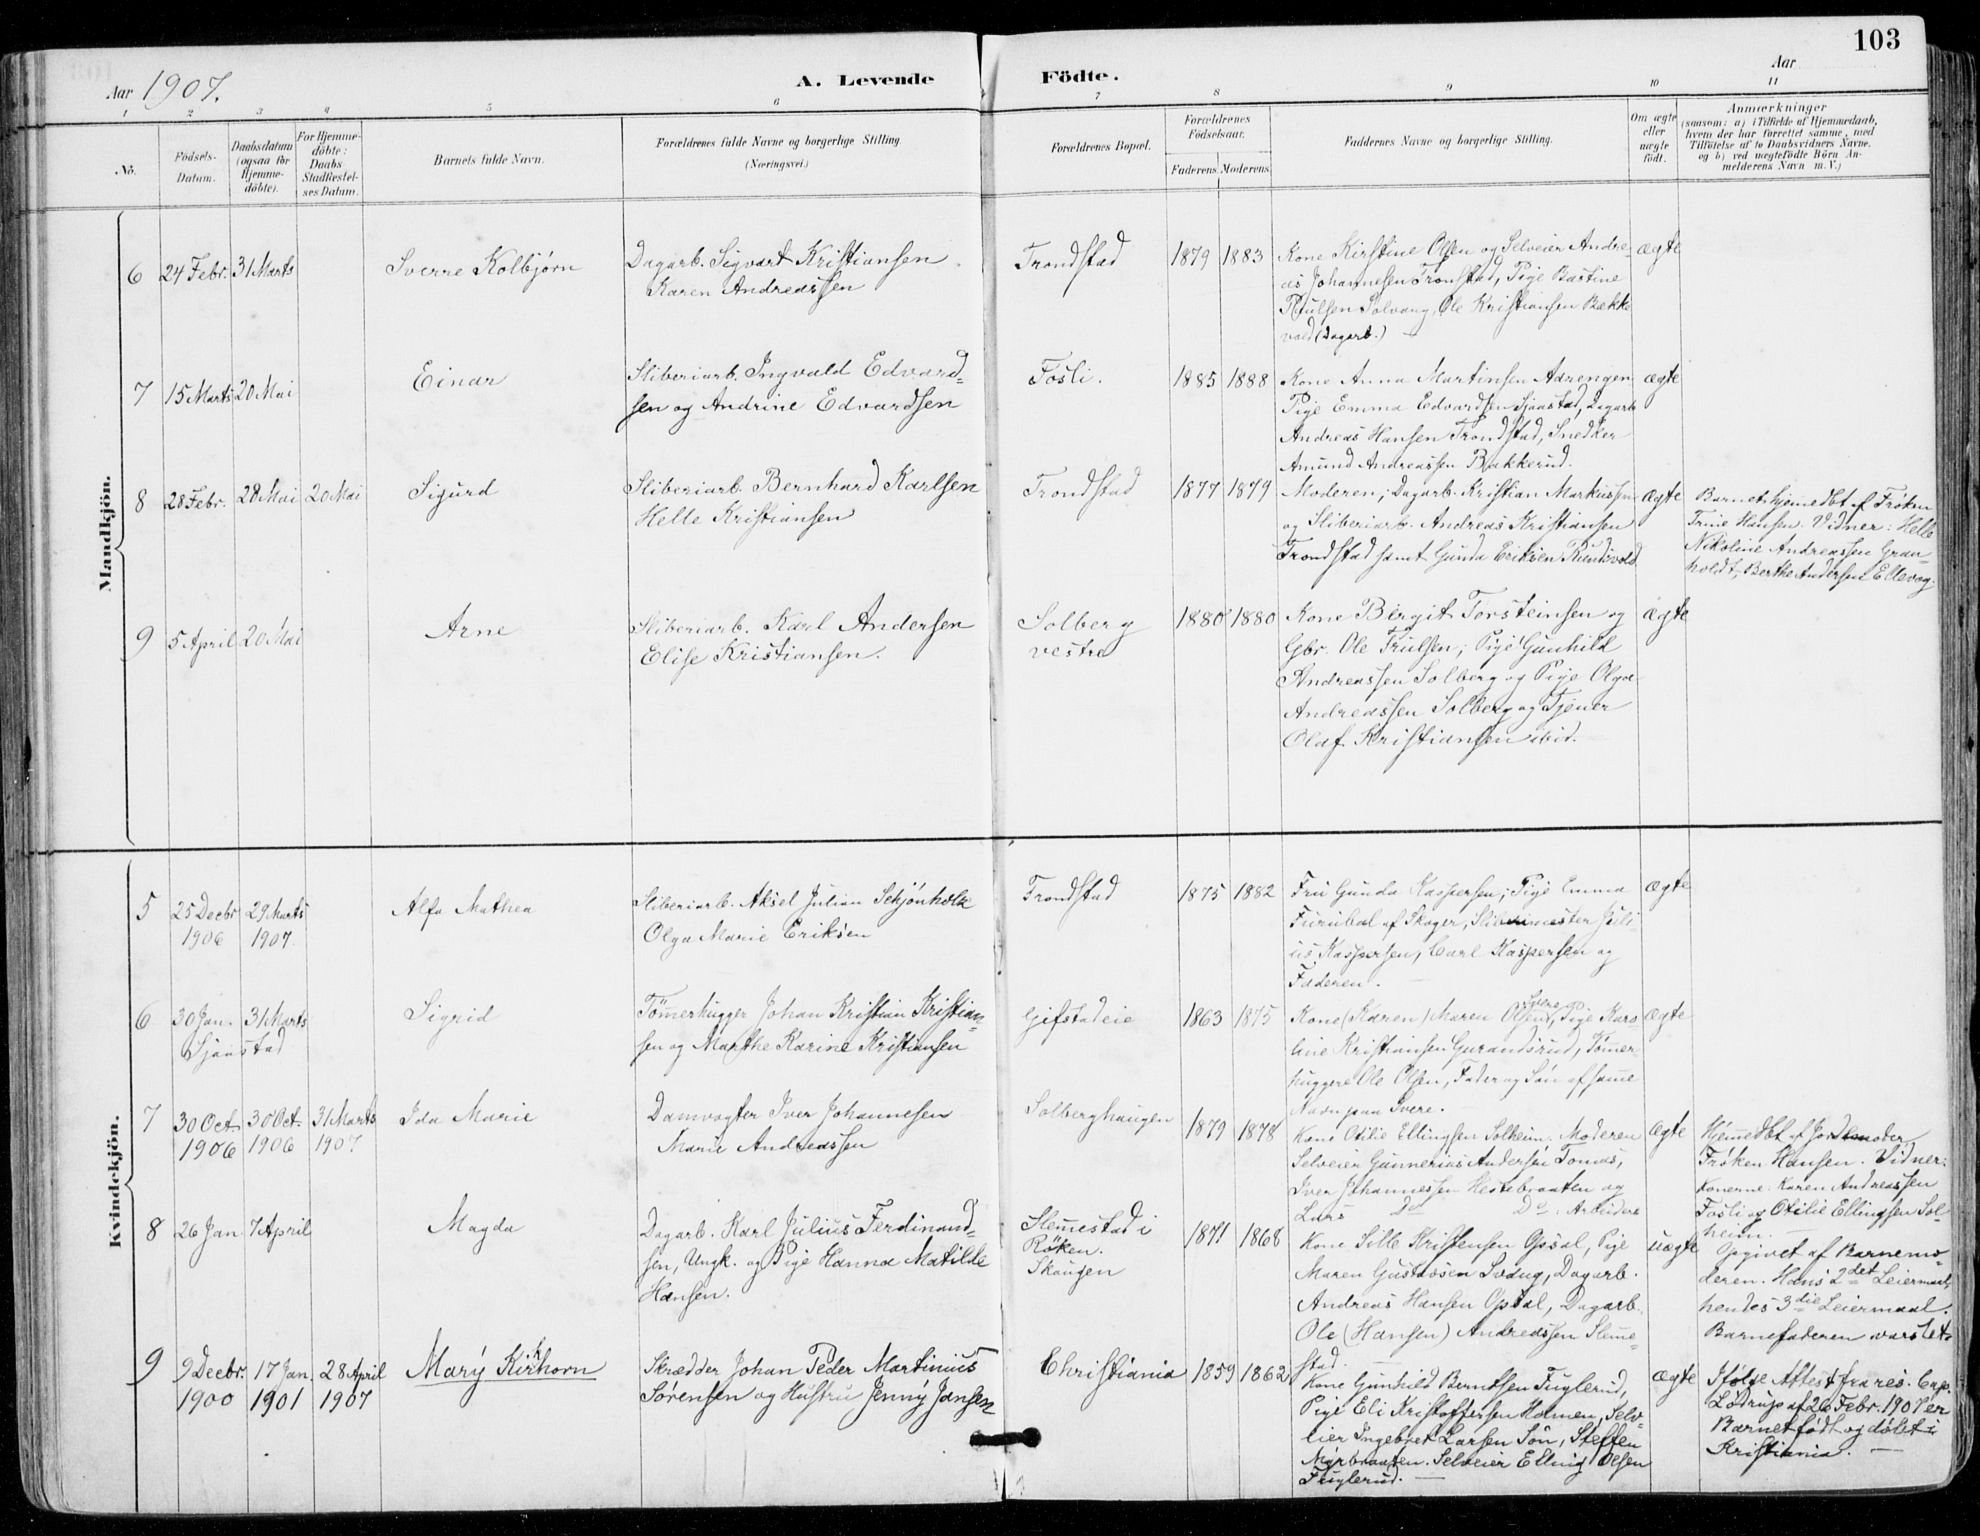 103
Aar 1907.
A. Levende Födte.
Aar
1 2 3 4 5 6 7 8 9 10 11
No.
Födsels-Datum.
Daabsdatum (ogsaa for Hjemme-döbte).
For Hjemme-döbte: Daabs-Stadfæstel-ses Datum.
Barnets fulde Navn.
Forældrenes fulde Navne og borgerlige Stilling (Næringsvei.)
Forældrenes Bopæl.
Forældrenes Födselsaar.
Faderens. Moderens.
Faddernes Navne og borgerlige Stilling.
Om ægte eller uægte födt.
Anmærkninger
(saasom: a) i Tilfælde af Hjemmedaab,
hvem der har forrettet samme, med
Tilföielse af to Daabsvidners Navne.
og b) ved uægtefödte Börn An-
melderens Navn m. V.)
Mandkjön.
6 24 Febr. 31 Marts
Sverre Kolbjørn
Dagarb. Sigvart Kristiansen
Karen Andreassen
Trondstad
1879 1883
Kone Kirstine Olsen og Selveier Andre-
as Johannesen Trondstad, Pige Bastine
Paulsen Solvang, Ole Kristiansen Bække
vold (Dagarb.)
ægte
7 15 Marts 20 Mai
Einar
Sliberiarb. Ingvald Edvard-
sen og Andrine Edvardsen
Fosli.
1885 1888
Kone Anna Martinsen Aarengen
Pige Emma Edvardsen Sjaastad, Dagarb
Andreas Hansen Trondstad, Snedker
Amund Andreassen Bakkerud.
ægte
8 28 Febr. 28 Mai 20 Mai
Sigurd
Sliberiarb. Bernhard Karlsen
Helle Kristiansen
Trondstad
1877 1879
Moderen; Dagarb. Kristian Markussen
og Sliberiarb. Andreas Kristiansen
Trondstad samt Gunda Eriksen Rundvold
ægte
Barnet hjemedbt af Frøken
Trine Hansen. Vidner: Helle
Nikoline Andreassen Gran-
holdt, Berthe Andersen Ellevog.
9 5 April 20 Mai
Arne
Sliberiarb. Karl Andersen
Elise Kristiansen.
Solberg
vestre
1880 1880
Kone Birgit Torsteinsen og
Gbr. Ole Trulsen; Pige Gunhild
Andreassen Solberg og Pige Olga
Andreassen Solberg og Tjener
Olaf Kristiansen ibid.
ægte
Kvindekjön.
5 25 Decbr 29 Marts
1906 1907.
Alfa Mathea
Sliberiarb. Aksel Julian Schjönholt
Olga Marie Eriksen
Trondstad
1875 1882
Fru Gunda Kaspersen; Pige Emma
Furubal af Skoger, Slibemester Juli
us Kaspersen, Carl Kaspersen og
Faderen.
ægte
6 30 Jan. 31 Marts
Sjaastad
Sigrid
Tömerhugger Johan Kristian Kristian-
sen og Marthe Karine Kristiansen
Gifstadeie
1863 1875
Svere
Kone (Karen) Maren Olsen, Pige Karo
line Kristiansen Gurandsrud, Tömer
huggere Ole Olsen, Fader og Søn af samme
Navn paa Svere.
ægte
7 30 Oct 30 Oct. 31 Marts
1906 1906 1907
Ida Marie
Damvogter Iver Johannesen
Marie Andreassen
Solberghaugen
1879 1878
Kone Otilie Ellingsen Solheim. Moderen
Selveier Gunnerius Andersen Tomas,
Iver Johannessen Hestebraaten og
Lars Do Do: Arbeidere
ægte
Hjemedbt af Jordemoder
Frøken Hansen. Vidner:
Konerne: Karen Andreassen
Fosli og Otilie Ellingsen Sol-
heim.
8 26 Jan. 7 April
Magda
Dagarb. Karl Julius Ferdinand-
sen, Ungk. og Pige Hanna Matilde
Hansen.
Slemestad i
Röken.
Skaugen
1871 1868
Kone Sille Kristensen Opsal, Pige
Maren Gustavsen Svang, Dagarb.
Andreas Hansen Opsal, Dagarb.
Ole (Hansen) Andreassen Sleme
stad.
uægte
Opgivet af Barnemo-
deren. Hans 2det Leiermaal,
hendes 3die Leiermaal.
Barnefaderen varslet.
9 9 Decbr. 17 Jan. 28 April
1900 1901 1907
Mary Kirkhorn
Skrædder Johan Peder Martinius
Sörensen og Hustru Jenny Jansen
Christiania
1859 1862
Kone Gunhild Berntsen Fuglerud,
Pige Eli Kristoffersen Holmen, Selv-
eier Ingebret Larsen Søn, Steffen
Myrbraaten. Selveier Elling Olsen
Fuglerud.
ægte
Ifølge Attest fra res. Cap.
Lödrup af 26 Febr. 1907 er
Barnet født og døbt i
Kristiania.